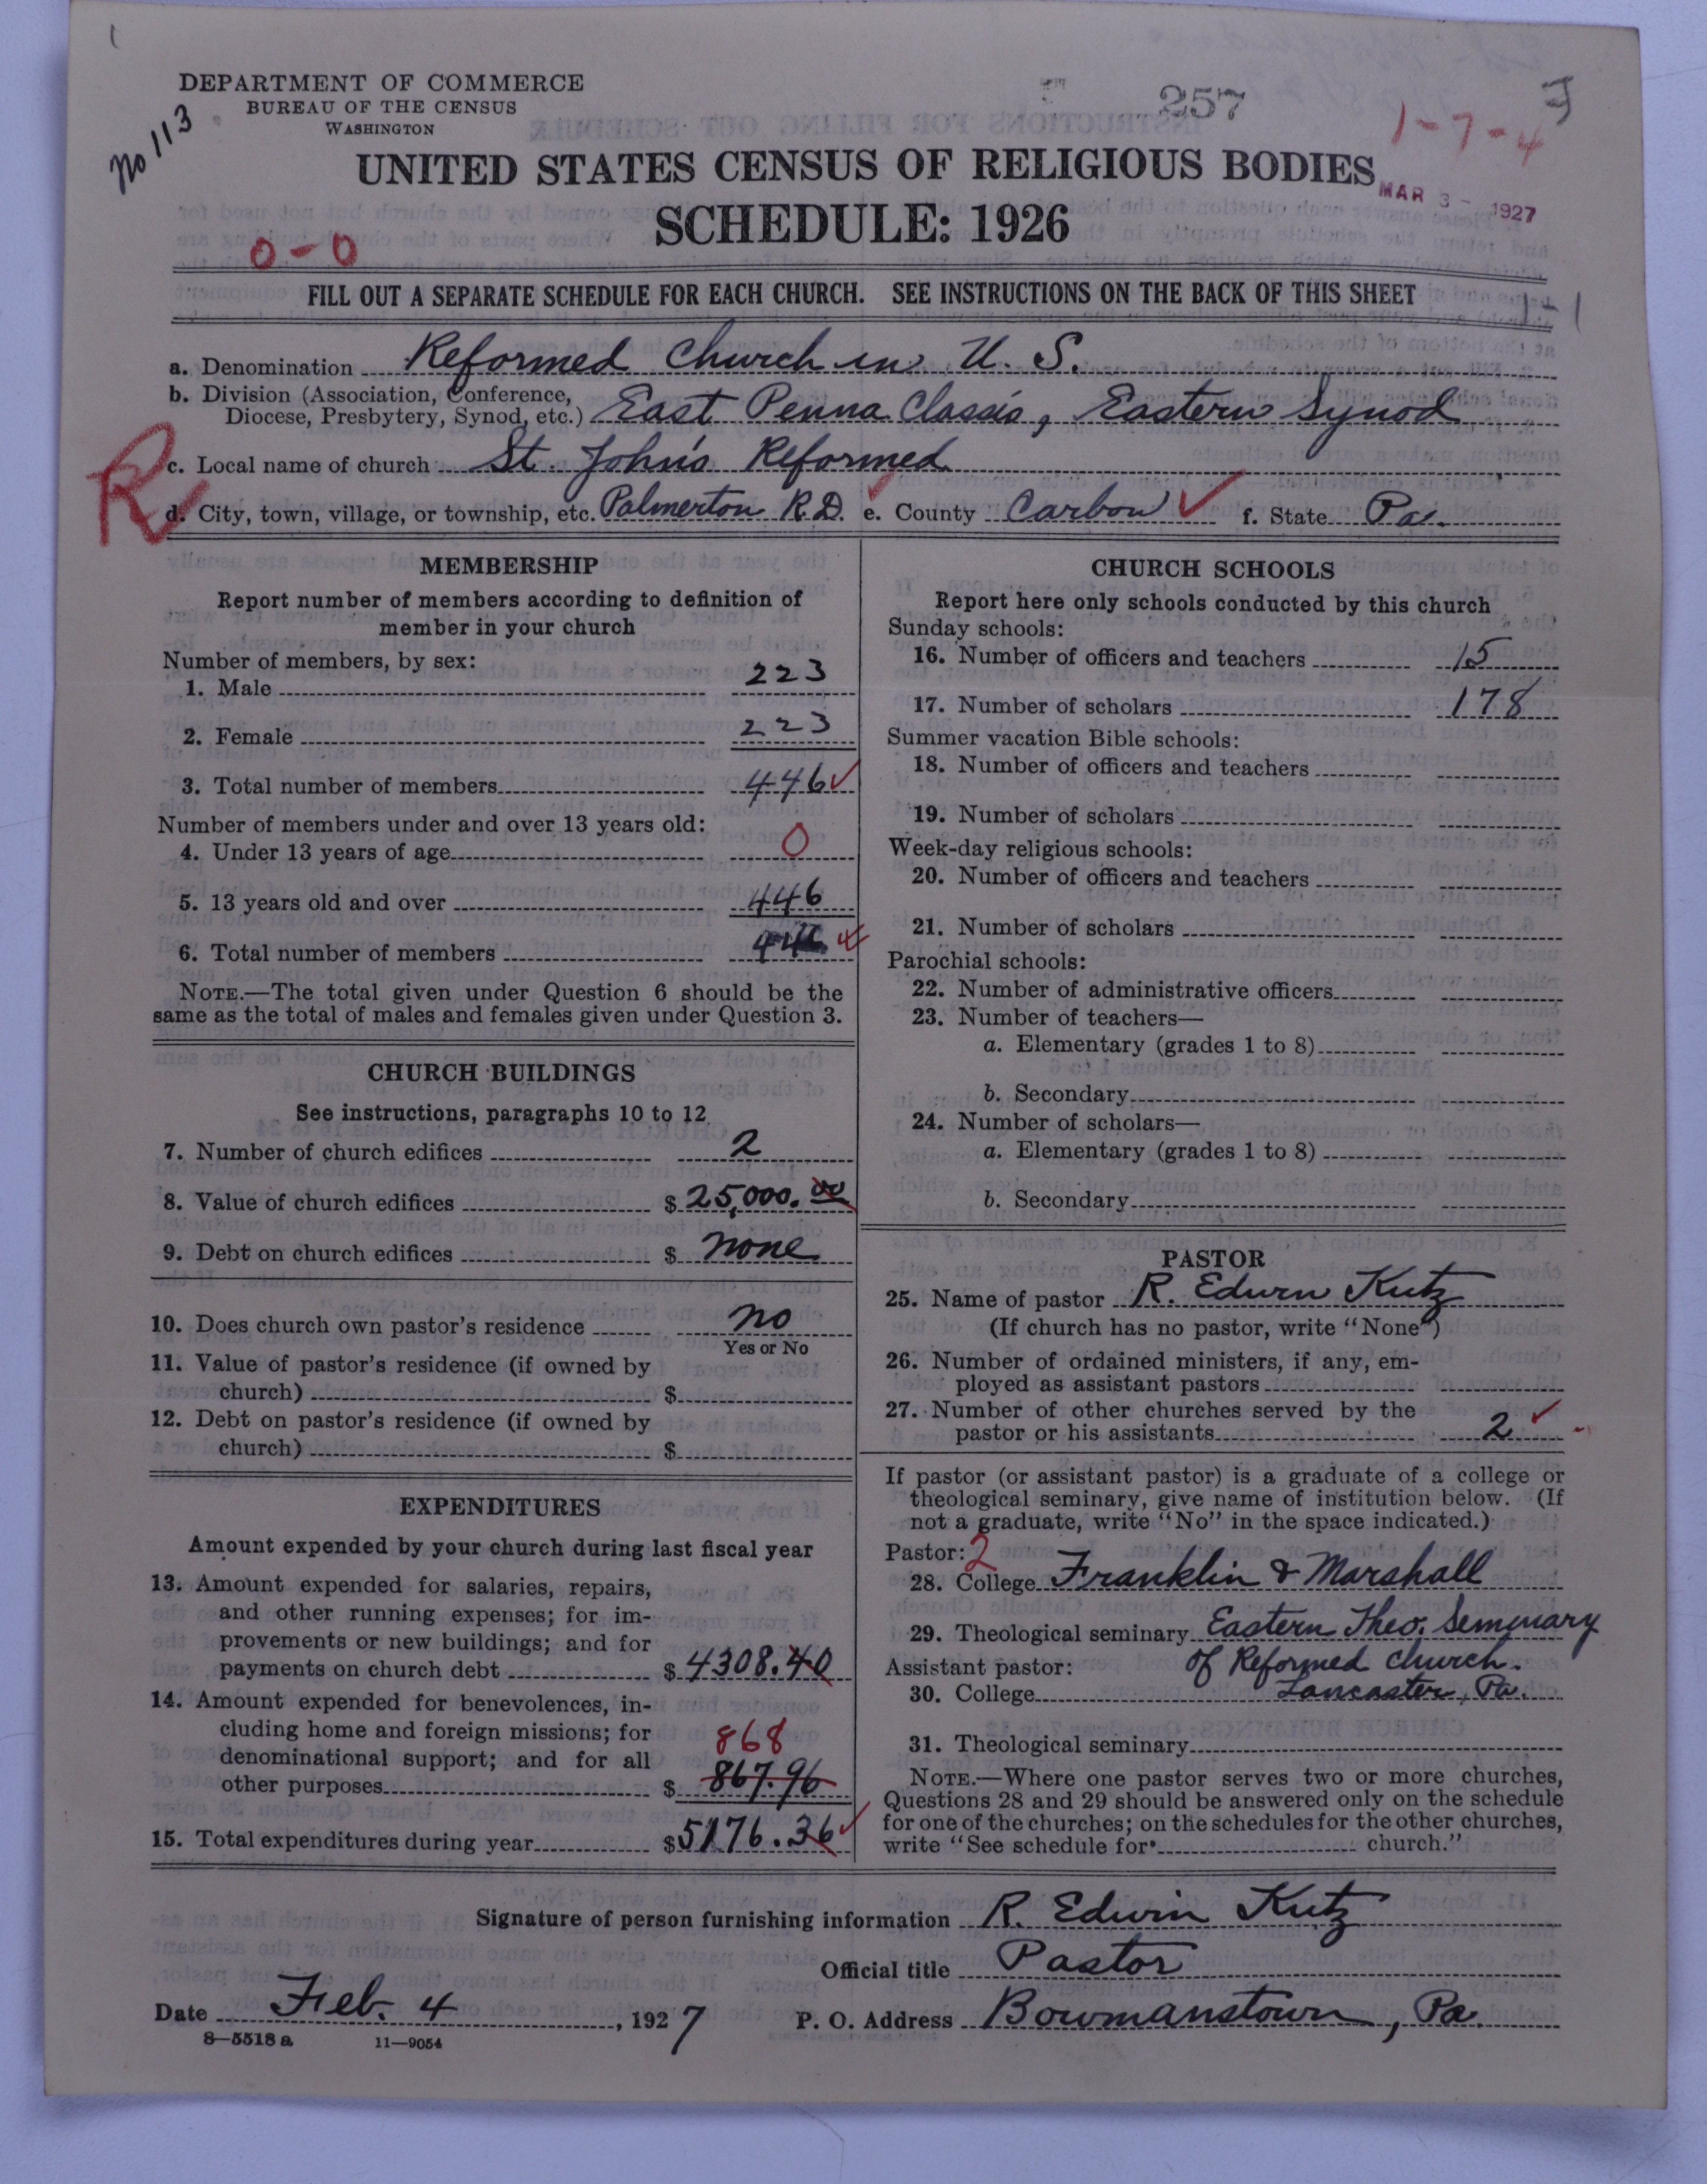 DEPARTMENT OF COMMERCE
BUREAU OF THE CENSUS
WASHINGTON
No 113
257
1-7-4
UNITED STATES CENSUS OF RELIGIOUS BODIES
MAR 3 - 1927
SCHEDULE: 1926
0-0
FILL OUT A SEPARATE SCHEDULE FOR EACH CHURCH. SEE INSTRUCTIONS ON THE BACK OF THIS SHEET
1-1
a. Denomination Reformed Church in U. S.
b. Division (Association, Conference,
Diocese, Presbytery, Synod, etc.) East Penna. Classis, Eastern Synod
c. Local name of church St. John's Reformed
R
d. City, town, village, or township, etc. Palmerton R.D. e. County Carbon f. State Pa.
MEMBERSHIP
Report number of members according to definition of
member in your church
Number of members, by sex:
1. Male 223
2. Female 223
3. Total number of members 446
Number of members under and over 13 years old:
4. Under 13 years of age 0
5. 13 years old and over 446
6. Total number of members 446
NOTE.—The total given under Question 6 should be the
same as the total of males and females given under Question 3.
CHURCH BUILDINGS
See instructions, paragraphs 10 to 12
7. Number of church edifices 2
8. Value of church edifices $ 25,000.00
9. Debt on church edifices $ none
10. Does church own pastor's residence no
Yes or No
11. Value of pastor's residence (if owned by
church) $
12. Debt on pastor's residence (if owned by
church) $
EXPENDITURES
Amount expended by your church during last fiscal year
13. Amount expended for salaries, repairs,
and other running expenses; for im-
provements or new buildings; and for
payments on church debt $ 4308.40
14. Amount expended for benevolences, in-
cluding home and foreign missions; for
868
denominational support; and for all
other purposes $ 867.96
15. Total expenditures during year $ 5176.36
CHURCH SCHOOLS
Report here only schools conducted by this church
Sunday schools:
16. Number of officers and teachers 15
17. Number of scholars 178
Summer vacation Bible schools:
18. Number of officers and teachers
19. Number of scholars
Week-day religious schools:
20. Number of officers and teachers
21. Number of scholars
Parochial schools:
22. Number of administrative officers
23. Number of teachers—
a. Elementary (grades 1 to 8)
b. Secondary
24. Number of scholars—
a. Elementary (grades 1 to 8)
b. Secondary
PASTOR
25. Name of pastor R. Edwin Kutz
(If church has no pastor, write "None")
26. Number of ordained ministers, if any, em-
ployed as assistant pastors
27. Number of other churches served by the
pastor or his assistants 2
If pastor (or assistant pastor) is a graduate of a college or
theological seminary, give name of institution below. (If
not a graduate, write "No" in the space indicated.)
Pastor: 2
28. College Franklin & Marshall
29. Theological seminary Eastern Theo. Seminary
Assistant pastor: of Reformed Church.
30. College Lancaster, Pa.
31. Theological seminary
NOTE.—Where one pastor serves two or more churches,
Questions 28 and 29 should be answered only on the schedule
for one of the churches; on the schedules for the other churches,
write "See schedule for church."
Signature of person furnishing information R. Edwin Kutz
Official title Pastor
Date Feb. 4, 1927 P. O. Address Bowmanstown, Pa.
8—5518 a 11—9054